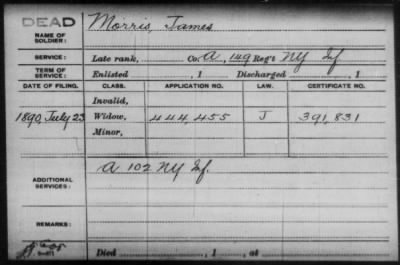 DEAD
NAME OF SOLDIER: Morris, James
SERVICE: Late rank, Co. A, 149 Reg't NY Inf
TERM OF SERVICE: Enlisted , 1 Discharged , 1
DATE OF FILING. CLASS. APPLICATION NO. LAW. CERTIFICATE NO.
Invalid,
1890, July 23 Widow, 444,455 J 391,831
Minor,
ADDITIONAL SERVICES: A 102 NY Inf.
REMARKS:
Died , 1 , at